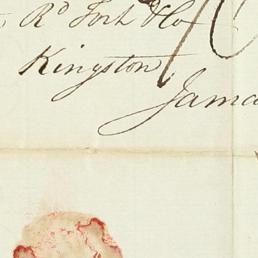 Rd Fork & Co
Kingston
Jama